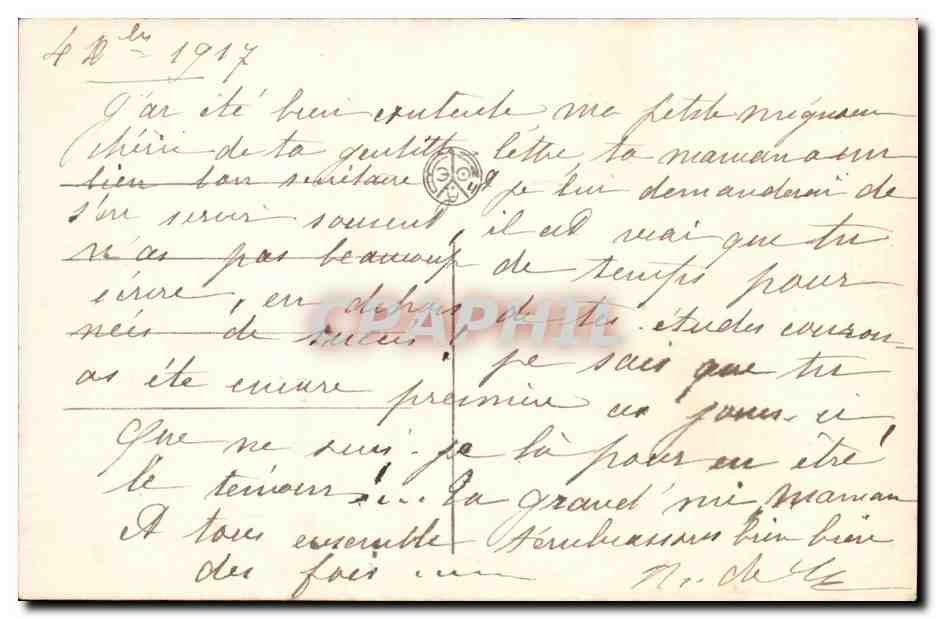 4 Xbre 1917
J'ai été bien contente ma petite mignonne
chérie de ta gentille lettre, ta maman a un
bien bon secrétaire & je lui demanderai de
s'en servir souvent, il est vrai que tu
n'as pas beaucoup de temps pour
écrire, en dehors de tes études couron-
nées de succès! je sais que tu
as été encore première ces jours-ci
Que ne suis-je là pour en être
le témoin! ... Ta grand'mie, Maman
Et tous ensemble t'embrassons bien bien
des fois
CPAPHIL